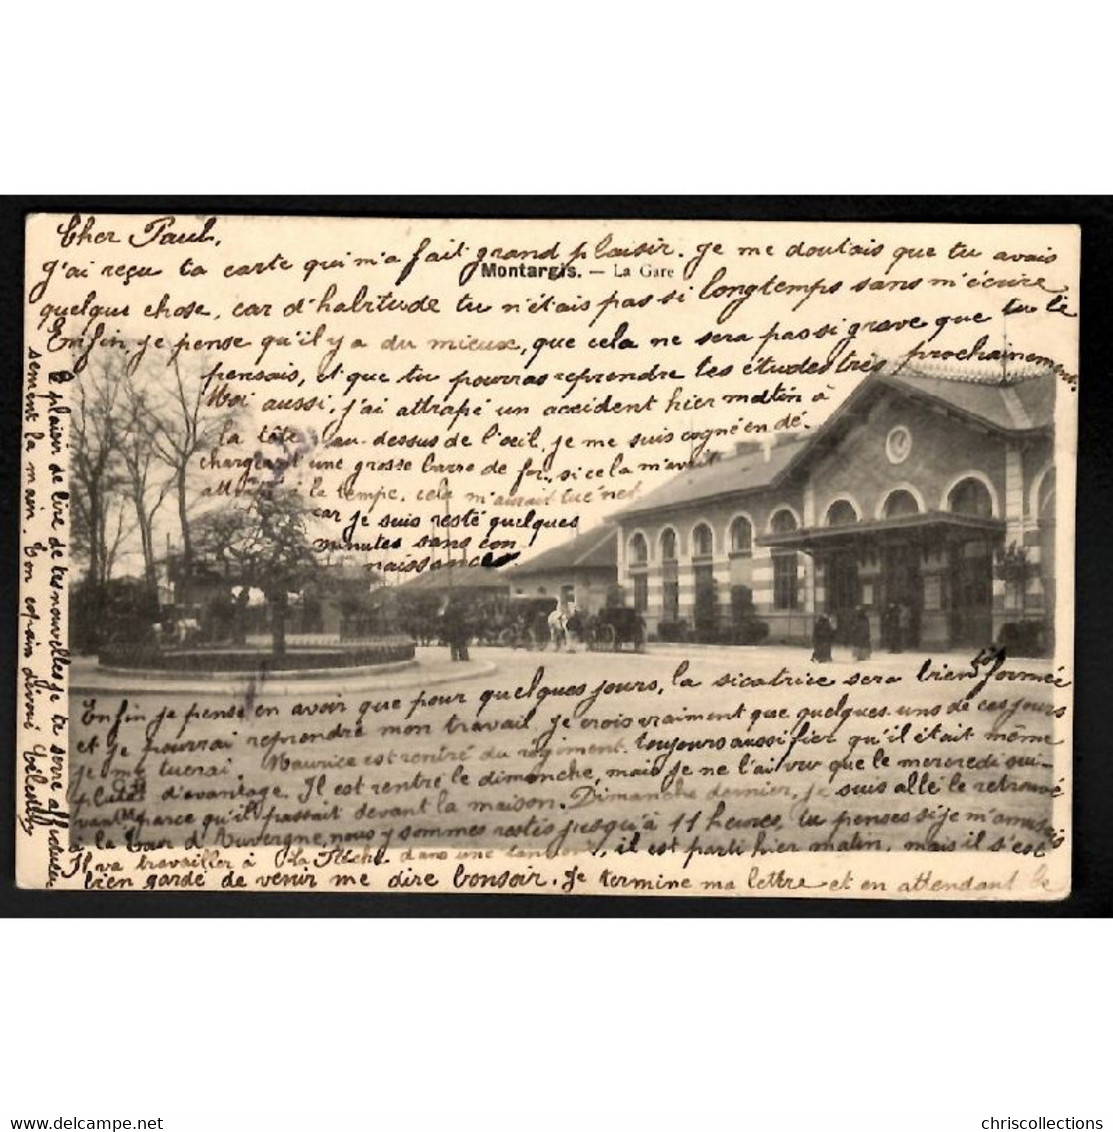 Cher Paul,
J'ai reçu ta carte qui m'a fait grand plaisir. Je me doutais que tu avais
Montargis. — La Gare
quelque chose, car d'habitude tu n'étais pas si longtemps sans m'écrire
Enfin, je pense qu'il y a du mieux, que cela ne sera pas si grave que tu le
pensais, et que tu pourras reprendre tes études très prochainement.
Moi aussi, j'ai attrapé un accident hier matin à
la tête au-dessus de l'œil, je me suis cogné en dé-
chargeant une grosse barre de fer, si cela m'avait
attrapé à la tempe, cela m'aurait tué net
car je suis resté quelques
minutes sans con
naissances.
Enfin je pense en avoir que pour quelques jours, la sicatrice sera bientôt formée
et je pourrai reprendre mon travail, je crois vraiment que quelques-uns de ces jours
je me tuerai. Maurice est rentré du régiment toujours aussi fier qu'il était même
plutôt d'avantage. Il est rentré le dimanche, mais je ne l'ai vu que le mercredi sui-
vant parce qu'il passait devant la maison. Dimanche dernier, je suis allé le retrouvé
à la Tour d'Auvergne, nous y sommes restés jusqu'à 11 heures, tu penses si je m'amusais
Il va travailler à La dans une il est parti hier matin, mais il s'est
bien gardé de venir me dire bonsoir. Je termine ma lettre et en attendant le
le plaisir de lire de tes nouvelles je te serre affectueu
sement la main. Ton copain dévoué
delcampe.net
chriscollections